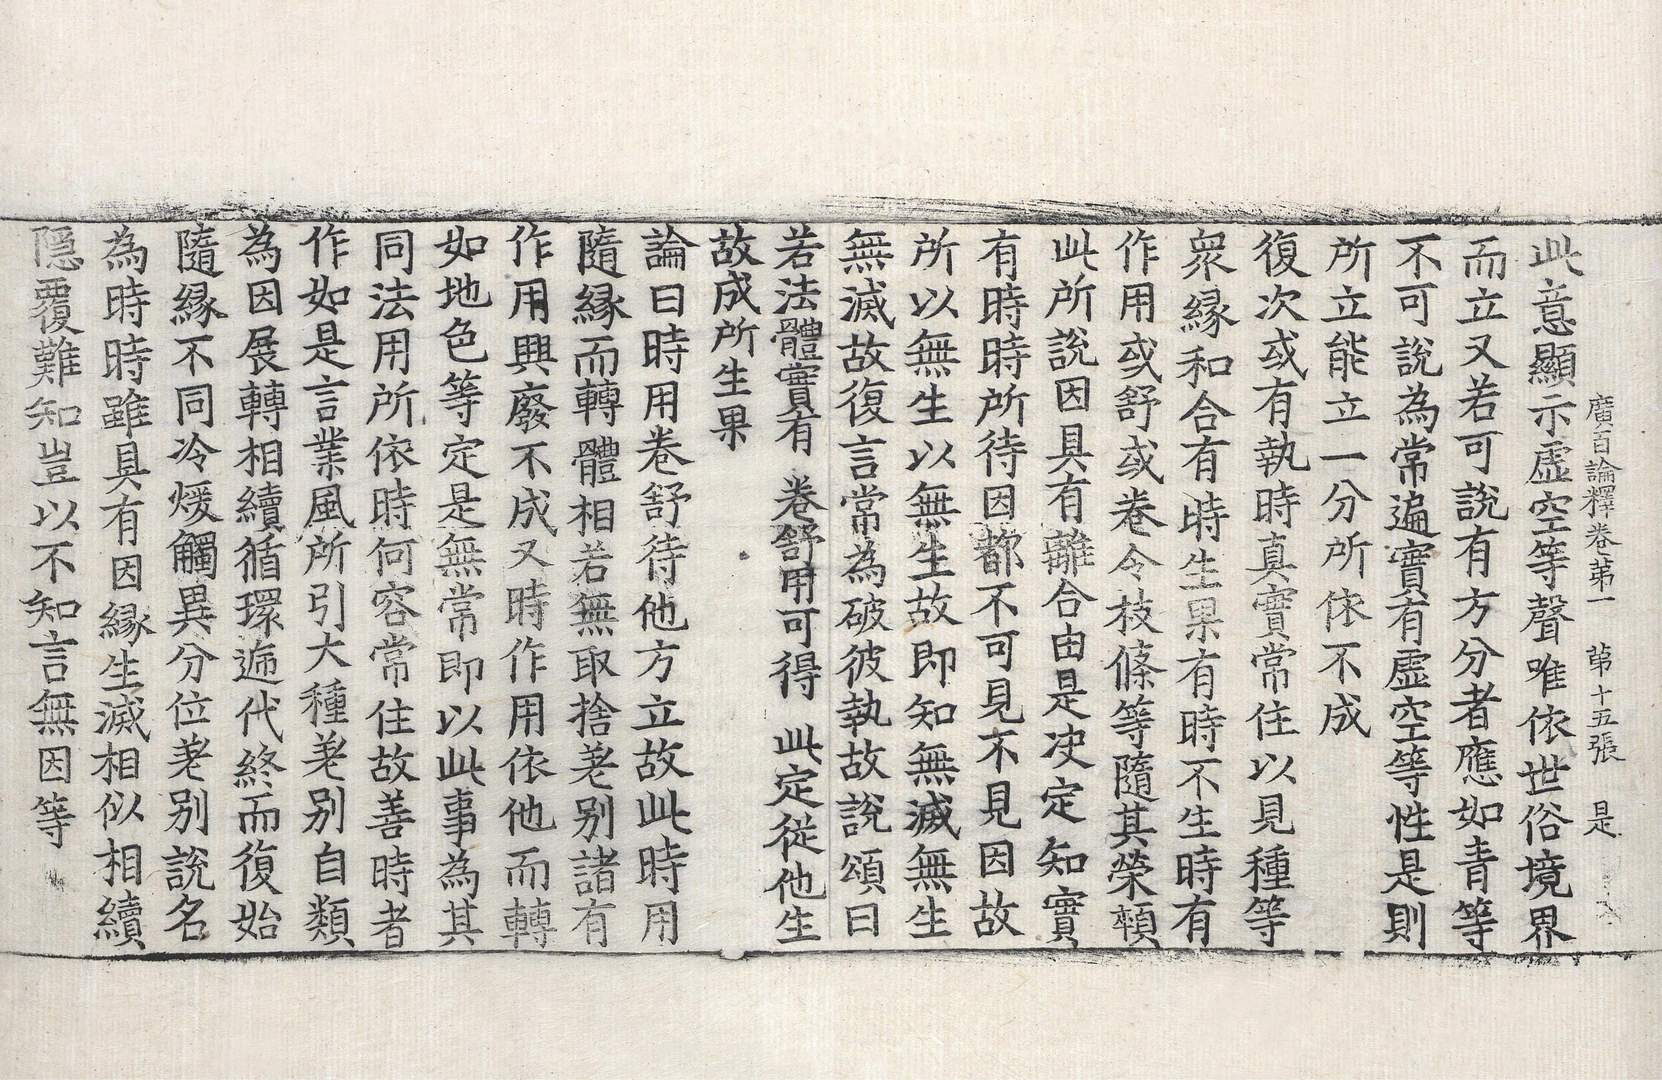 廣百論釋卷第一 第十五張 是
此意顯示虛空等聲唯依世俗境界
而立又若可說有方分者應如青等
不可說為常遍實有虛空等性是則
所立能立一分所依不成
復次或有執時真實常住以見種等
衆緣和合有時生果有時不生時有
作用或舒或卷令枝條等隨其榮頓
此所說因具有離合由是決定知實
有時時所待因都不可見不見因故
所以無生以無生故即知無滅無生
無滅故復言常為破彼執故說頌曰
若法體實有 卷舒用可得 此定從他生
故成所生果
論曰時用卷舒待他方立故此時用
隨緣而轉體相若無取捨差別諸有
作用興廢不成又時作用依他而轉
如地色等定是無常即以此事為其
同法用所依時何容常住故善時者
作如是言業風所引大種差別自類
為因展轉相續循環遞代終而復始
隨緣不同冷煖觸異分位差別說名
為時時雖具有因緣生滅相似相續
隱覆難知豈以不知言無因等